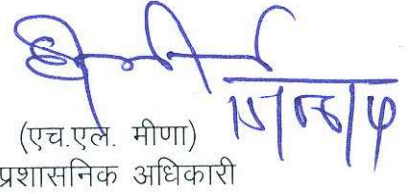 (एच.एल. मीणा)
प्रशासनिक अधिकारी